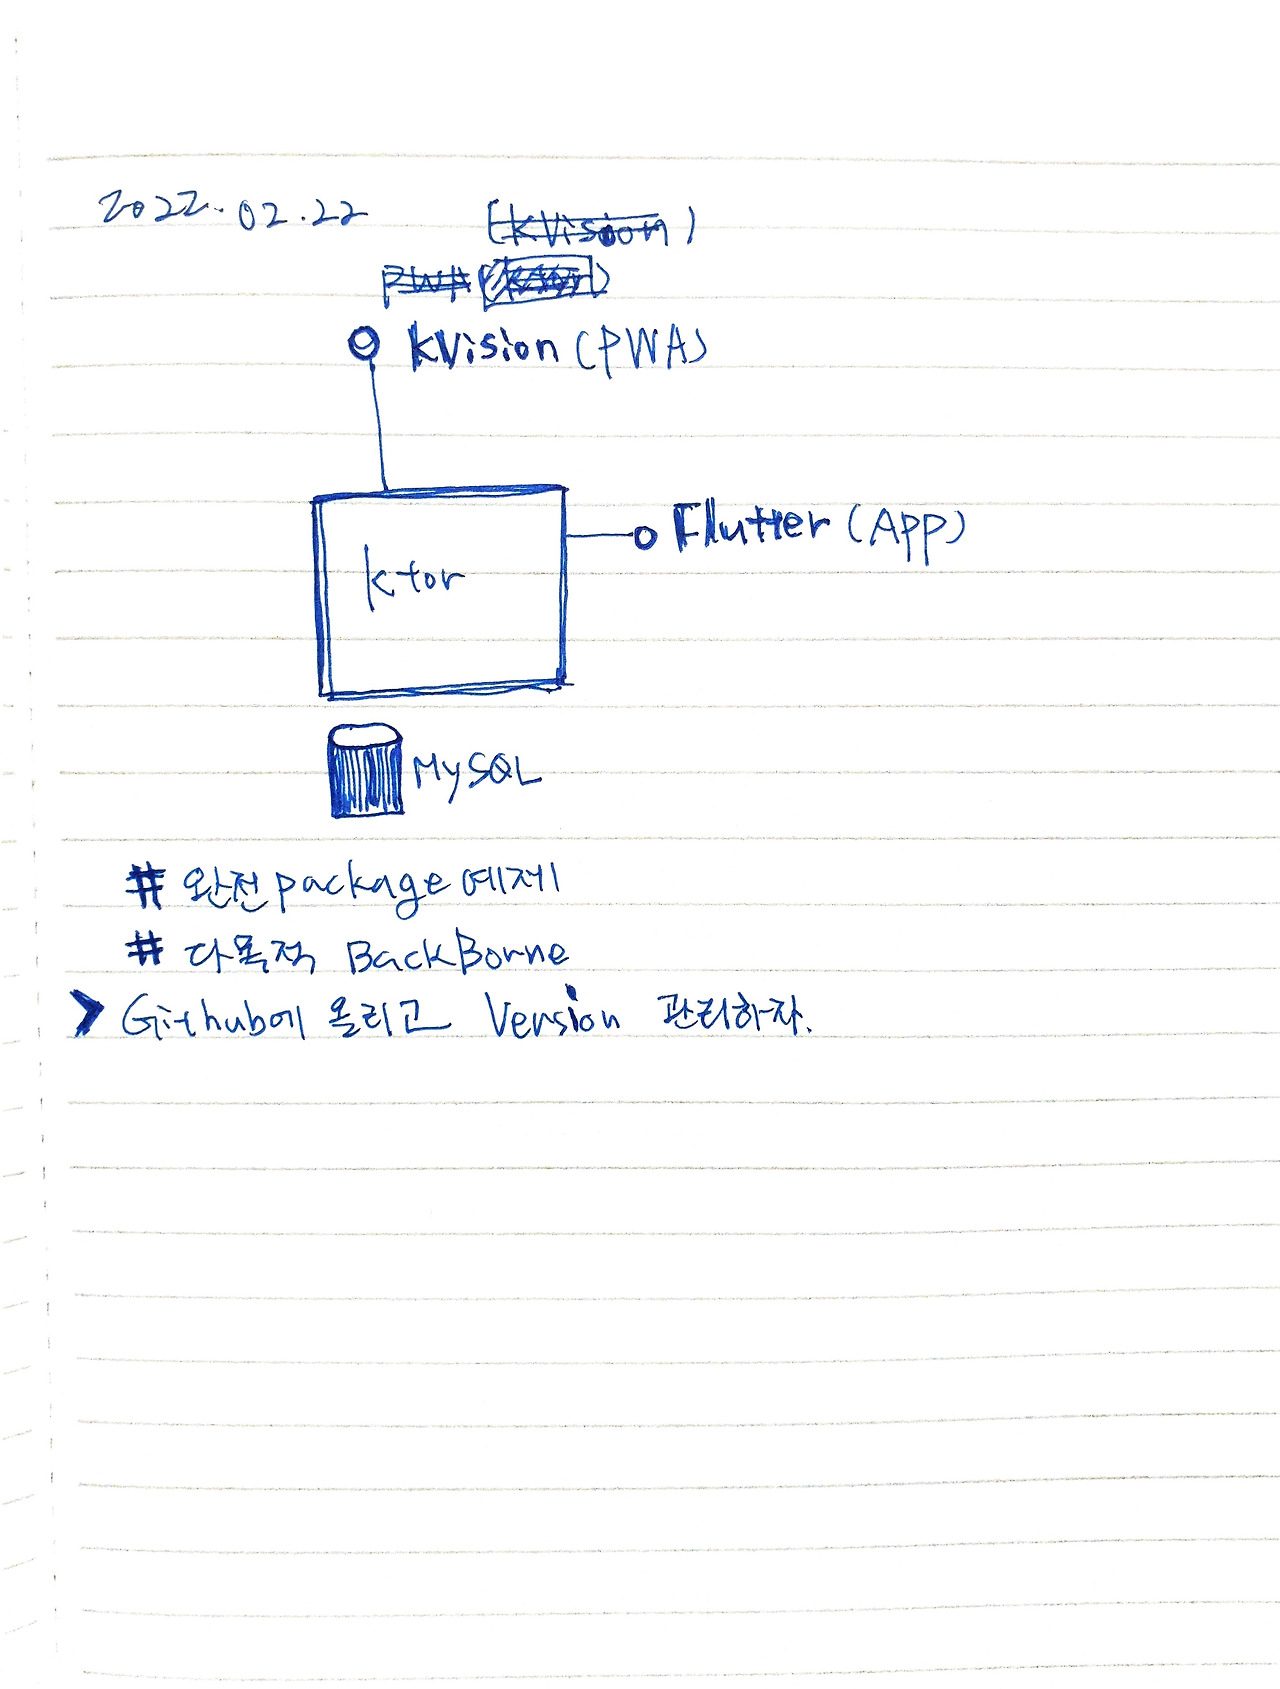 2022.02.22
(KVision)
PWA
KVision (PWA)
Flutter (App)
ktor
MySQL
# 완전package 예제
# 다목적 BackBorne
> Github에 올리고 Version 관리하자.